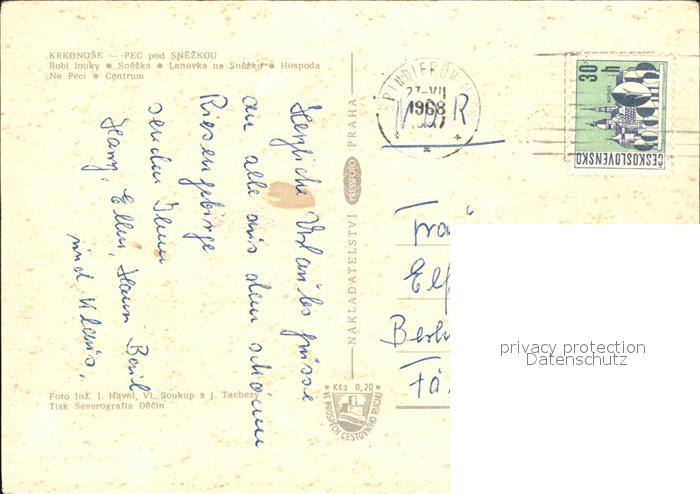 KRKONOŠE — PEC pod SNĚŽKOU
Bobí louky ● Sněžka ● Lanovka na Sněžku ● Hospoda
Na Peci ● Centrum
Herzliche Urlaubsgrüsse
an alle aus dem schönen
Riesengebirge
senden Ihnen
Harry, Ellen, Hanni
und Klaus.
Foto Inž. J. Havel, Vl. Soukup a J. Tachezy
Tisk Severografia Děčín
NAKLADATELSTVÍ PRESSFOTO PRAHA
Kčs 0,20
VE PROSPĚCH CESTOVNÍHO RUCHU
ŠPINDLERŮV
1968
30 h
ČESKOSLOVENSKO
Frau
privacy protection
Datenschutz